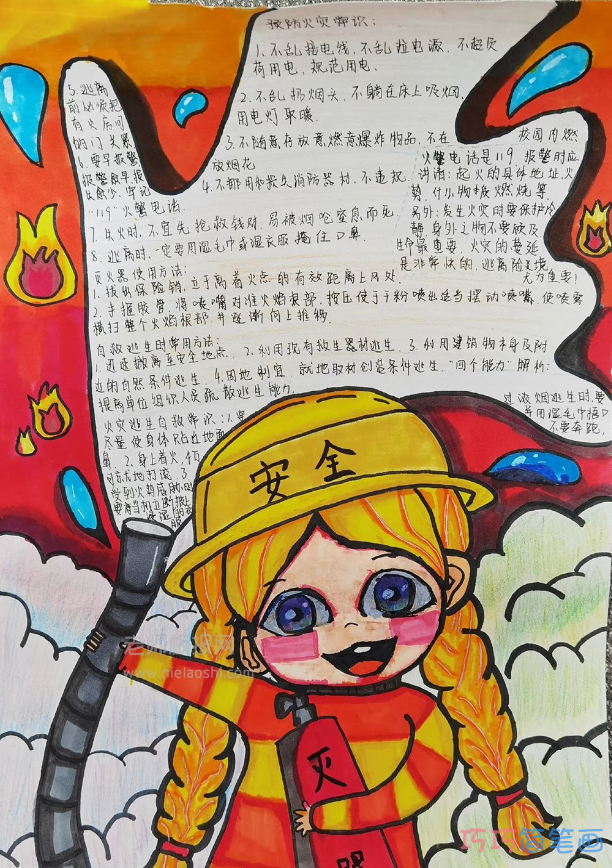 预防火灾常识:
1、不乱接电线,不乱拉电源,不超负
荷用电、规范用电、
2、不乱扔烟头,不躺在床上吸烟,
用电灯取暖
3、不随意存放易燃易爆炸物品,不在
放烟花
4、不挪用和损失消防器材,不违规
校园内燃
火警电话是119,报警时应
讲清:起火的具体地址,火
势,什么物燃烧等,
另外:发生火灾时要保护冷
静,身外之物不要顾及
生命最重要,火灾的蔓延
是非常快的,逃离险境
尤为重要!
5、逃离
有火房间
的门关紧
6、要早报警
报警愈早损
失愈少,牢记
"119"火警电话
7、失火时,不宜先抢救钱财,易被烟呛窒息而死
8、逃离时,一定要用湿毛巾或湿衣服掩住口鼻
灭火器使用方法:
1、拔出保险销,立于离着火点的有效距离上风处
2、手握胶管,将喷嘴对准火焰根部,按压使干粉喷出适当摆动喷嘴,使喷雾
横扫整个火焰根部,并逐渐向上推移
自救逃生时常用方法:
1、迅速撤离至安全地点、2、利用现有救生器材逃生、3、利用建筑物本身及附
近的自然条件逃生、4、因地制宜,就地取材创造条件逃生、"四个能力"解析:
提高单位组织人员疏散逃生能力、
火灾逃生自救常识:1、
尽量使身体贴近地面
2、身上着火,切
可就地打滚,3、
过浓烟逃生时,要
并用湿毛巾捂
不要奔跑,
安全
灭
器
老师画报网
www.melaoshi.com
巧巧简笔画